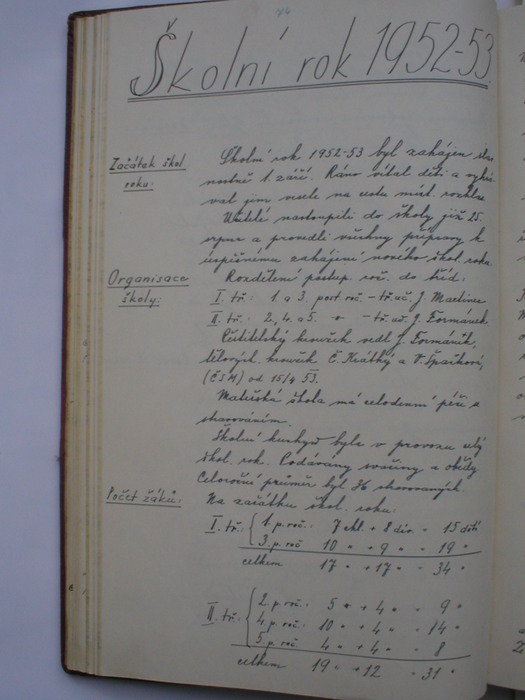 74
Školní rok 1952-53.
Začátek škol. roku:
Školní rok 1952-53 byl zahájen slav
nostně 1. září. Ráno vítal děti a vyhrá
val jim vesele na cestu míst. rozhlas.
Učitelé nastoupili do školy již 25.
srpna a provedli všechny přípravy k
úspěšnému zahájení nového škol. roku.
Organisace školy:
Rozdělení postup. roč. do tříd:
I. tř.: 1. a 3. post. roč. - tř. uč. J. Martinec
II. tř.: 2, 4. a 5. -"- - tř. uč. J. Formánek
Čtitelský kroužek vedl J. Formánek,
tělových. kroužek Č. Krátký a V. Špačková,
(ČSM) od 15/4 53.
Mateřská škola má celodenní péči s
stravováním.
Školní kuchyň byla v provozu celý
škol. rok. Podávány svačiny a obědy.
Celoroční průměr byl 36 stravovaných.
Počet žáků:
Na začátku škol. roku:
I. tř.: { 1. p. roč.: 7 chl. + 8 dív. - 15 dětí
3. p. roč. 10 " + 9 " - 19 "
celkem 17 " + 17 " - 34 "
II. tř.: { 2 p. roč.: 5 " + 4 " - 9 "
4 p. roč.: 10 " + 4 " - 14 "
5. p. roč. 4 " + 4 " - 8
celkem 19 " + 12 - 31 "